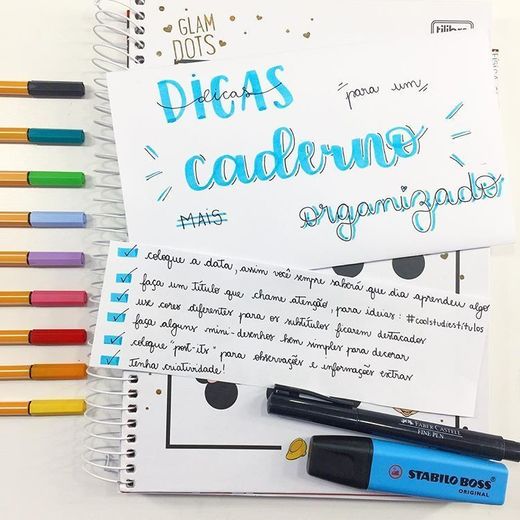 GLAM
DOTS
tilibra
DICAS
dicas
para um
caderno
MAIS
organizado
coloque a data, assim você sempre saberá que dia aprendeu algo
faça um título que chame atenção, para ideias: #coolstudiestitulos
use cores diferentes para os subtítulos ficarem destacados
faça alguns mini-desenhos bem simples para decorar
coloque "post-its" para observações e informações extras
tenha criatividade!
FABER CASTELL
FINE PEN
STABILO BOSS
ORIGINAL